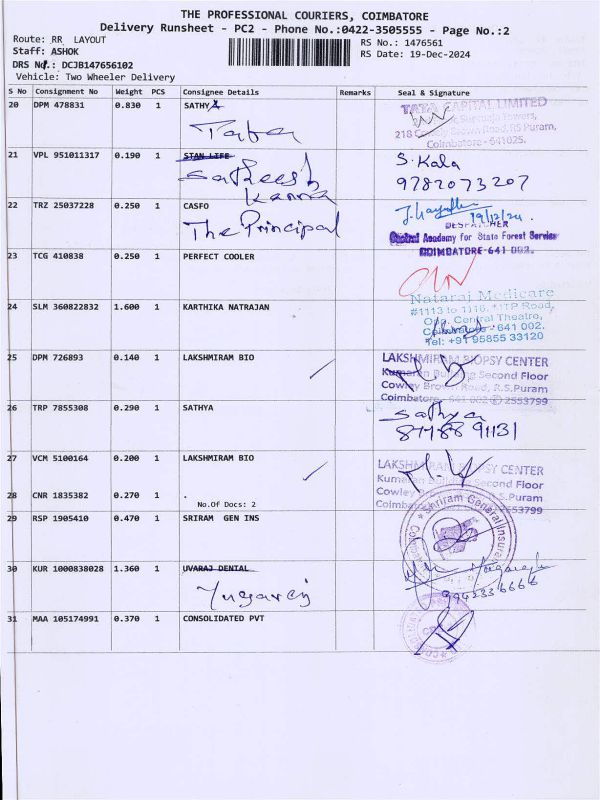 THE PROFESSIONAL COURIERS, COIMBATORE
Delivery Runsheet - PC2 - Phone No.:0422-3505555 - Page No.:2
Route: RR LAYOUT
RS No.: 1476561
Staff: ASHOK
RS Date: 19-Dec-2024
DRS No.: DCJB147656102
Vehicle: Two Wheeler Delivery
S No Consignment No Weight PCS Consignee Details Remarks Seal & Signature
20 DPM 478831 0.830 1 SATHYA
TATA CAPITAL LIMITED
Towers,
218 Cowley Brown Road, RS Puram,
Coimbatore - 641025.
21 VPL 951011317 0.190 1 STAN LIFE
Satheesh
Kanna
S. Kala
9782073207
22 TRZ 25037228 0.250 1 CASFO
The Principal
19/12/24
DESPATCHER
Central Academy for State Forest Service
COIMBATORE-641 002.
23 TCG 410838 0.250 1 PERFECT COOLER
24 SLM 360822832 1.600 1 KARTHIKA NATRAJAN
Nataraj Medicare
#1113 to 1116, MTP Road,
Opp. Central Theatre,
641 002.
Tel: +91 95855 33120
25 DPM 726893 0.140 1 LAKSHMIRAM BIO
LAKSHMIRAM BIOPSY CENTER
Kumaran Building Second Floor
Cowley Brown Road, R.S.Puram
Coimbatore - 641 002 2553799
26 TRP 7855308 0.290 1 SATHYA
Sathya
87788 91131
27 VCM 5100164 0.200 1 LAKSHMIRAM BIO
LAKSHMIRAM BIOPSY CENTER
Kumaran Building Second Floor
Cowley R.S.Puram
Coimbatore 2553799
28 CNR 1835382 0.270 1 .
No.Of Docs: 2
29 RSP 1905410 0.470 1 SRIRAM GEN INS
Shriram General Insurance
30 KUR 1000838028 1.360 1 UVARAJ DENTAL
Yugaraj
9942336666
31 MAA 105174991 0.370 1 CONSOLIDATED PVT